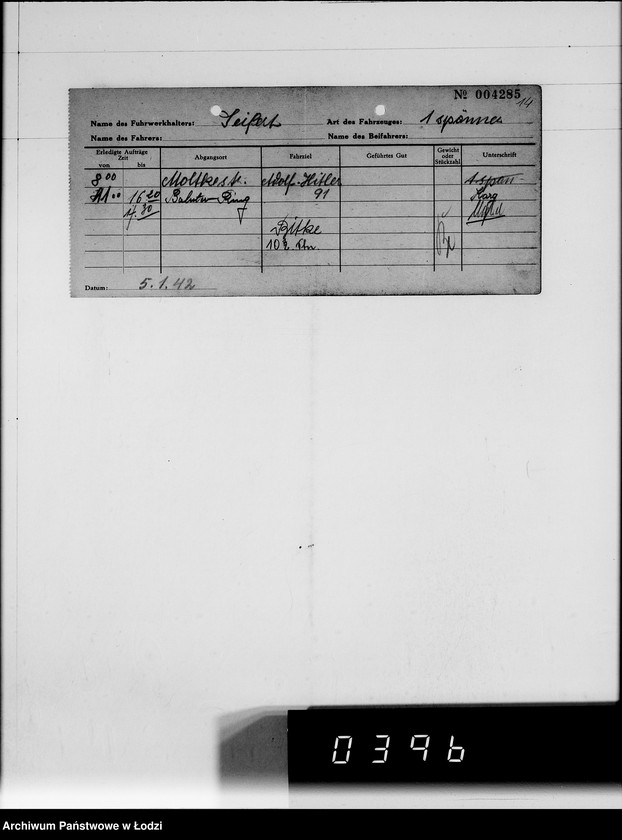 № 004285
14
Name des Fuhrwerkhalters: Seifert Art des Fahrzeuges: 1 spänner
Name des Fahrers: Name des Beifahrers:
Erledigte Aufträge Zeit von bis Abgangsort Fahrziel Geführtes Gut Gewicht oder Stückzahl Unterschrift
8 00 Moltkestr. Adolf-Hitler
16 30 Ring 91
17.30
10 ½ Stn.
Datum: 5.1.42
0396
Archiwum Państwowe w Łodzi